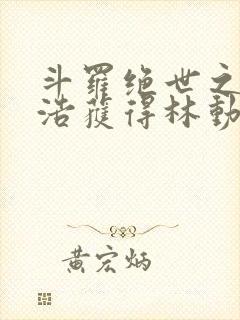 斗羅绝世之
浩獲得林動
黄宏炳